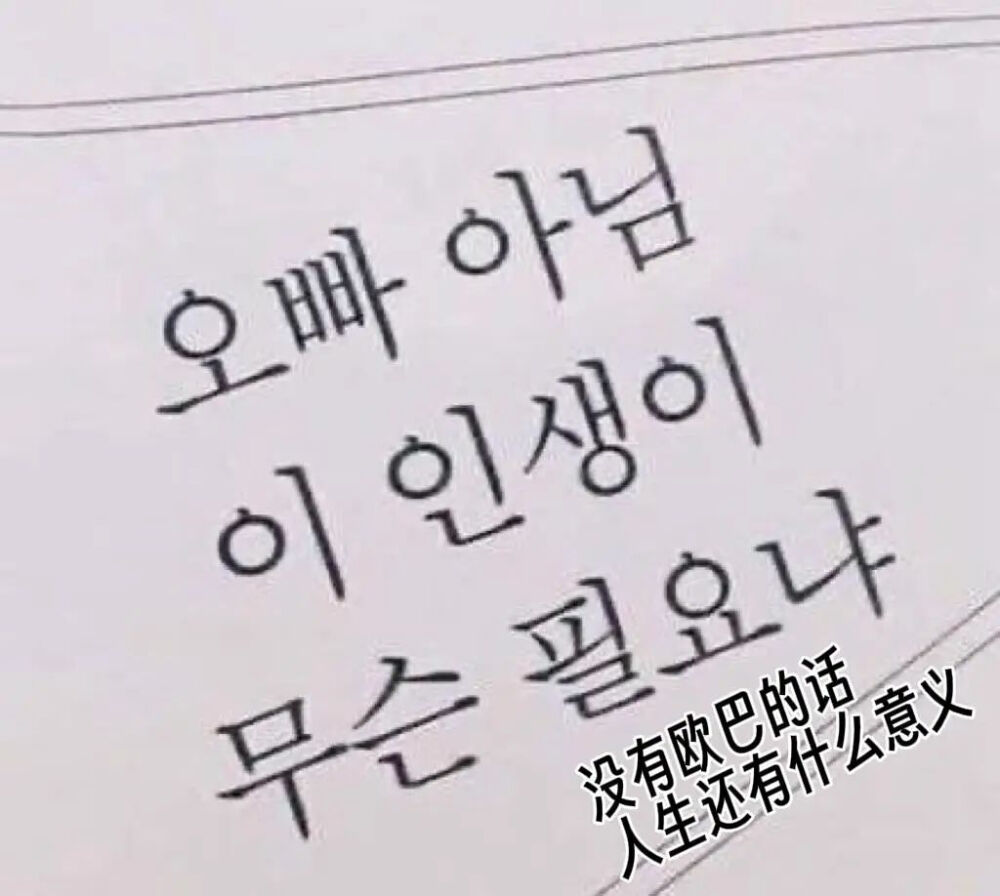 오빠 아님
이 인생이
무슨 필요냐
没有欧巴的话
人生还有什么意义